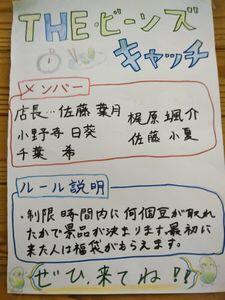 THE・ビーンズ
キャッチ
メンバー
店長…佐藤 葉月 梶原 颯介
小野寺 日葵 佐藤 小夏
千葉 希
ルール説明
・制限時間内に何個豆が取れ
たかで景品が決まります。最初に
来た人は福袋がもらえます。
ぜひ、来てね!!